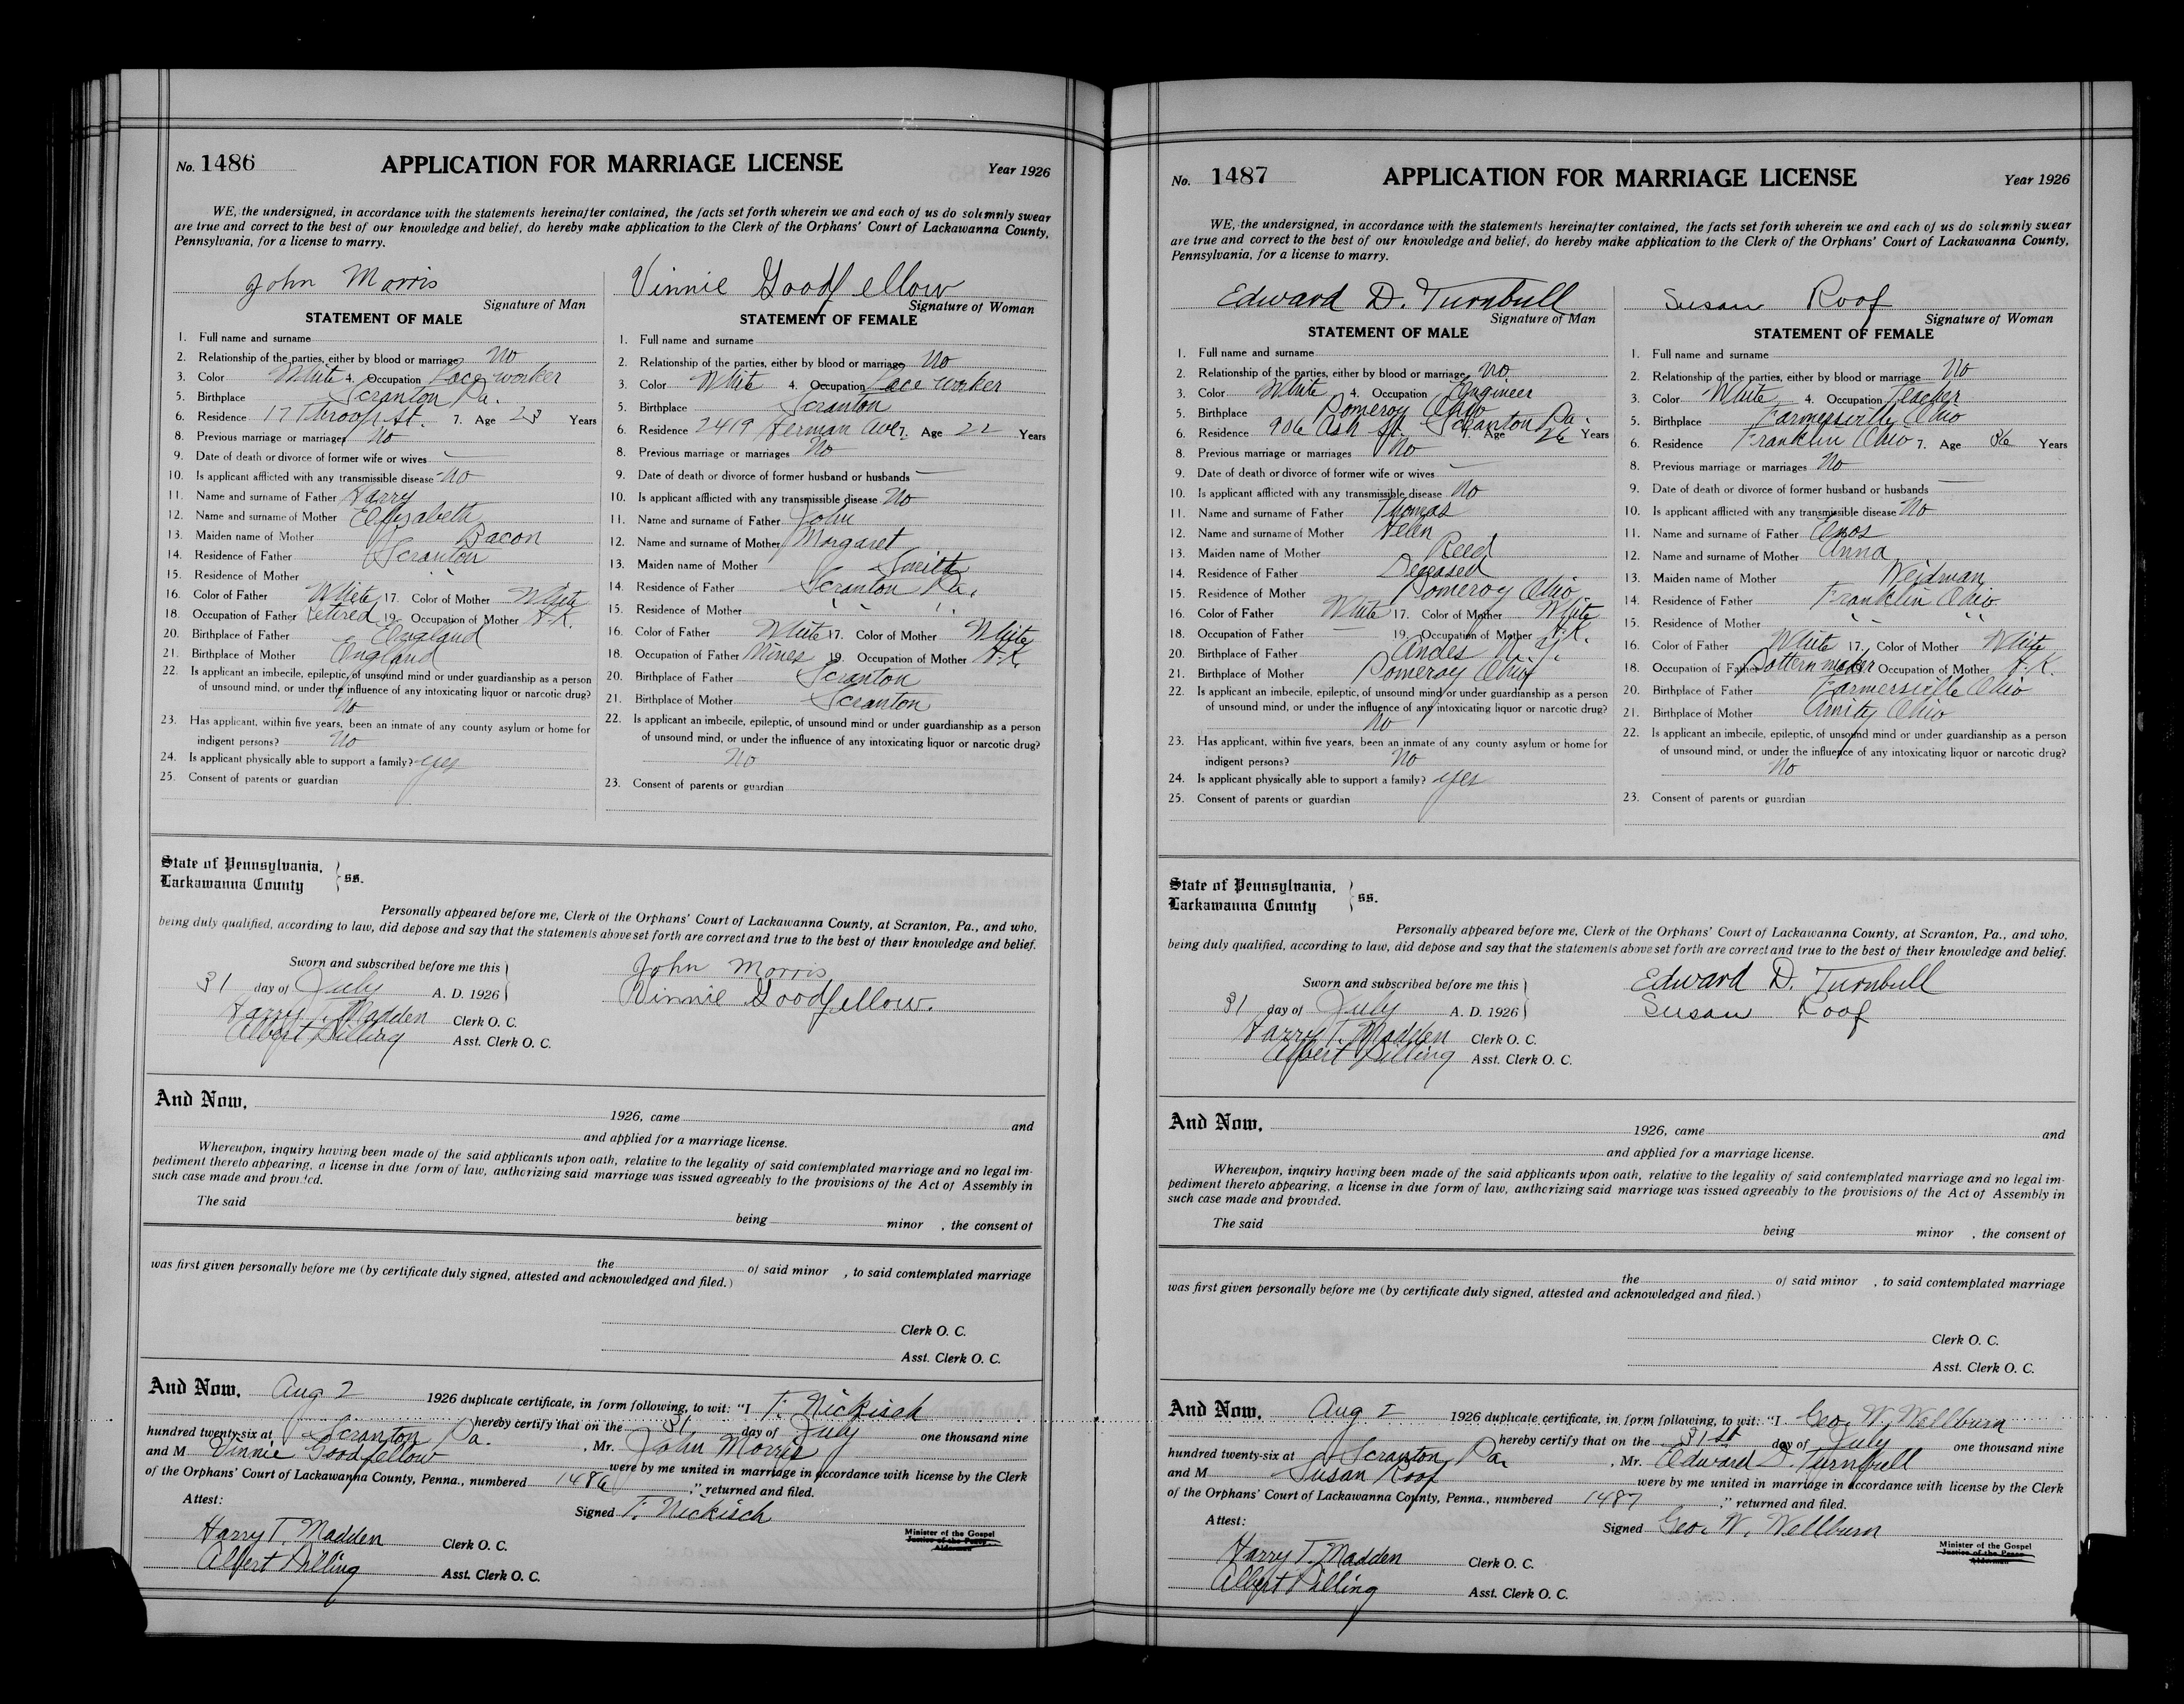 No. 1486 APPLICATION FOR MARRIAGE LICENSE Year 1926
WE, the undersigned, in accordance with the statements hereinafter contained, the facts set forth wherein we and each of us do solemnly swear
are true and correct to the best of our knowledge and belief, do hereby make application to the Clerk of the Orphans' Court of Lackawanna County,
Pennsylvania, for a license to marry.
John Morris
Signature of Man
STATEMENT OF MALE
1. Full name and surname
2. Relationship of the parties, either by blood or marriage No
3. Color White 4. Occupation Lace worker
5. Birthplace Scranton Pa.
6. Residence 17 Throop St. 7. Age 23 Years
8. Previous marriage or marriages No
9. Date of death or divorce of former wife or wives —
10. Is applicant afflicted with any transmissible disease No
11. Name and surname of Father Harry
12. Name and surname of Mother Elizabeth
13. Maiden name of Mother Bacon
14. Residence of Father Scranton
15. Residence of Mother " "
16. Color of Father White 17. Color of Mother White
18. Occupation of Father Retired 19. Occupation of Mother H.K.
20. Birthplace of Father England
21. Birthplace of Mother England
22. Is applicant an imbecile, epileptic, of unsound mind or under guardianship as a person
of unsound mind, or under the influence of any intoxicating liquor or narcotic drug?
No
23. Has applicant, within five years, been an inmate of any county asylum or home for
indigent persons? No
24. Is applicant physically able to support a family? yes
25. Consent of parents or guardian
Vinnie Goodfellow
Signature of Woman
STATEMENT OF FEMALE
1. Full name and surname
2. Relationship of the parties, either by blood or marriage No
3. Color White 4. Occupation Lace worker
5. Birthplace Scranton
6. Residence 2419 Herman Ave. 7. Age 22 Years
8. Previous marriage or marriages No
9. Date of death or divorce of former husband or husbands —
10. Is applicant afflicted with any transmissible disease No
11. Name and surname of Father John
12. Name and surname of Mother Margaret
13. Maiden name of Mother Smith
14. Residence of Father Scranton Pa.
15. Residence of Mother " "
16. Color of Father White 17. Color of Mother White
18. Occupation of Father Mines 19. Occupation of Mother H.K.
20. Birthplace of Father Scranton
21. Birthplace of Mother Scranton
22. Is applicant an imbecile, epileptic, of unsound mind or under guardianship as a person
of unsound mind, or under the influence of any intoxicating liquor or narcotic drug?
No
23. Consent of parents or guardian
State of Pennsylvania,
Lackawanna County } ss.
Personally appeared before me, Clerk of the Orphans' Court of Lackawanna County, at Scranton, Pa., and who,
being duly qualified, according to law, did depose and say that the statements above set forth are correct and true to the best of their knowledge and belief.
Sworn and subscribed before me this John Morris
31 day of July A. D. 1926 Vinnie Goodfellow.
Harry T. Madden Clerk O. C.
Albert Pilling Asst. Clerk O. C.
And Now, 1926, came and
and applied for a marriage license.
Whereupon, inquiry having been made of the said applicants upon oath, relative to the legality of said contemplated marriage and no legal im-
pediment thereto appearing, a license in due form of law, authorizing said marriage was issued agreeably to the provisions of the Act of Assembly in
such case made and provided.
The said being minor , the consent of
the of said minor , to said contemplated marriage
was first given personally before me (by certificate duly signed, attested and acknowledged and filed.)
Clerk O. C.
Asst. Clerk O. C.
And Now, Aug 2 1926 duplicate certificate, in form following, to wit: "I F. Nickisch
hereby certify that on the 31 day of July one thousand nine
hundred twenty-six at Scranton Pa. , Mr. John Morris
and M Vinnie Goodfellow were by me united in marriage in accordance with license by the Clerk
of the Orphans' Court of Lackawanna County, Penna., numbered 1486 ," returned and filed.
Attest: Signed F. Nickisch
Minister of the Gospel
Justice of the Peace
Alderman
Harry T. Madden Clerk O. C.
Albert Pilling Asst. Clerk O. C.
No. 1487 APPLICATION FOR MARRIAGE LICENSE Year 1926
WE, the undersigned, in accordance with the statements hereinafter contained, the facts set forth wherein we and each of us do solemnly swear
are true and correct to the best of our knowledge and belief, do hereby make application to the Clerk of the Orphans' Court of Lackawanna County,
Pennsylvania, for a license to marry.
Edward D. Turnbull
Signature of Man
STATEMENT OF MALE
1. Full name and surname
2. Relationship of the parties, either by blood or marriage No
3. Color White 4. Occupation Engineer
5. Birthplace Pomeroy Ohio
6. Residence 906 Ash St. Scranton Pa. 7. Age 26 Years
8. Previous marriage or marriages No
9. Date of death or divorce of former wife or wives —
10. Is applicant afflicted with any transmissible disease No
11. Name and surname of Father Thomas
12. Name and surname of Mother Helen
13. Maiden name of Mother Reed
14. Residence of Father Deceased
15. Residence of Mother Pomeroy Ohio
16. Color of Father White 17. Color of Mother White
18. Occupation of Father — 19. Occupation of Mother H.K.
20. Birthplace of Father Andes N.Y.
21. Birthplace of Mother Pomeroy Ohio
22. Is applicant an imbecile, epileptic, of unsound mind or under guardianship as a person
of unsound mind, or under the influence of any intoxicating liquor or narcotic drug?
No
23. Has applicant, within five years, been an inmate of any county asylum or home for
indigent persons? No
24. Is applicant physically able to support a family? yes
25. Consent of parents or guardian
Susan Roof
Signature of Woman
STATEMENT OF FEMALE
1. Full name and surname
2. Relationship of the parties, either by blood or marriage No
3. Color White 4. Occupation Teacher
5. Birthplace Farmersville Ohio
6. Residence Franklin Ohio 7. Age 36 Years
8. Previous marriage or marriages No
9. Date of death or divorce of former husband or husbands —
10. Is applicant afflicted with any transmissible disease No
11. Name and surname of Father Enos
12. Name and surname of Mother Anna
13. Maiden name of Mother Weidman
14. Residence of Father Franklin Ohio.
15. Residence of Mother " "
16. Color of Father White 17. Color of Mother White
18. Occupation of Father Patternmaker Occupation of Mother H.K.
20. Birthplace of Father Farmersville Ohio
21. Birthplace of Mother Amity Ohio
22. Is applicant an imbecile, epileptic, of unsound mind or under guardianship as a person
of unsound mind, or under the influence of any intoxicating liquor or narcotic drug?
No
23. Consent of parents or guardian
State of Pennsylvania,
Lackawanna County } ss.
Personally appeared before me, Clerk of the Orphans' Court of Lackawanna County, at Scranton, Pa., and who,
being duly qualified, according to law, did depose and say that the statements above set forth are correct and true to the best of their knowledge and belief.
Sworn and subscribed before me this Edward D. Turnbull
31 day of July A. D. 1926 Susan Roof
Harry T. Madden Clerk O. C.
Albert Pilling Asst. Clerk O. C.
And Now, 1926, came and
and applied for a marriage license.
Whereupon, inquiry having been made of the said applicants upon oath, relative to the legality of said contemplated marriage and no legal im-
pediment thereto appearing, a license in due form of law, authorizing said marriage was issued agreeably to the provisions of the Act of Assembly in
such case made and provided.
The said being minor , the consent of
the of said minor , to said contemplated marriage
was first given personally before me (by certificate duly signed, attested and acknowledged and filed.)
Clerk O. C.
Asst. Clerk O. C.
And Now, Aug 2 1926 duplicate certificate, in form following, to wit: "I Geo. W. Wellburn
hereby certify that on the 31st day of July one thousand nine
hundred twenty-six at Scranton Pa. , Mr. Edward D. Turnbull
and M Susan Roof were by me united in marriage in accordance with license by the Clerk
of the Orphans' Court of Lackawanna County, Penna., numbered 1487 ," returned and filed.
Attest: Signed Geo. W. Wellburn
Minister of the Gospel
Justice of the Peace
Alderman
Harry T. Madden Clerk O. C.
Albert Pilling Asst. Clerk O. C.